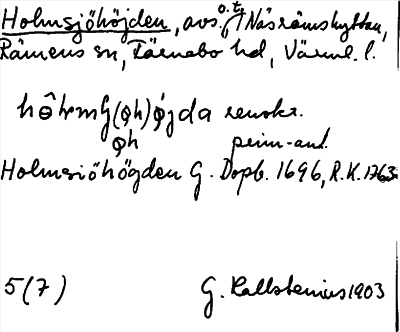 Holmsjöhöjden, avs. o. t. Näsrämshyttan,
Rämens sn, Färnebo hd, Värml. l.
renskr.
prim-ant.
Holmsiöhögden G. Dopb. 1696, R.K. 1763
5(7) G. Kallstenius 1903